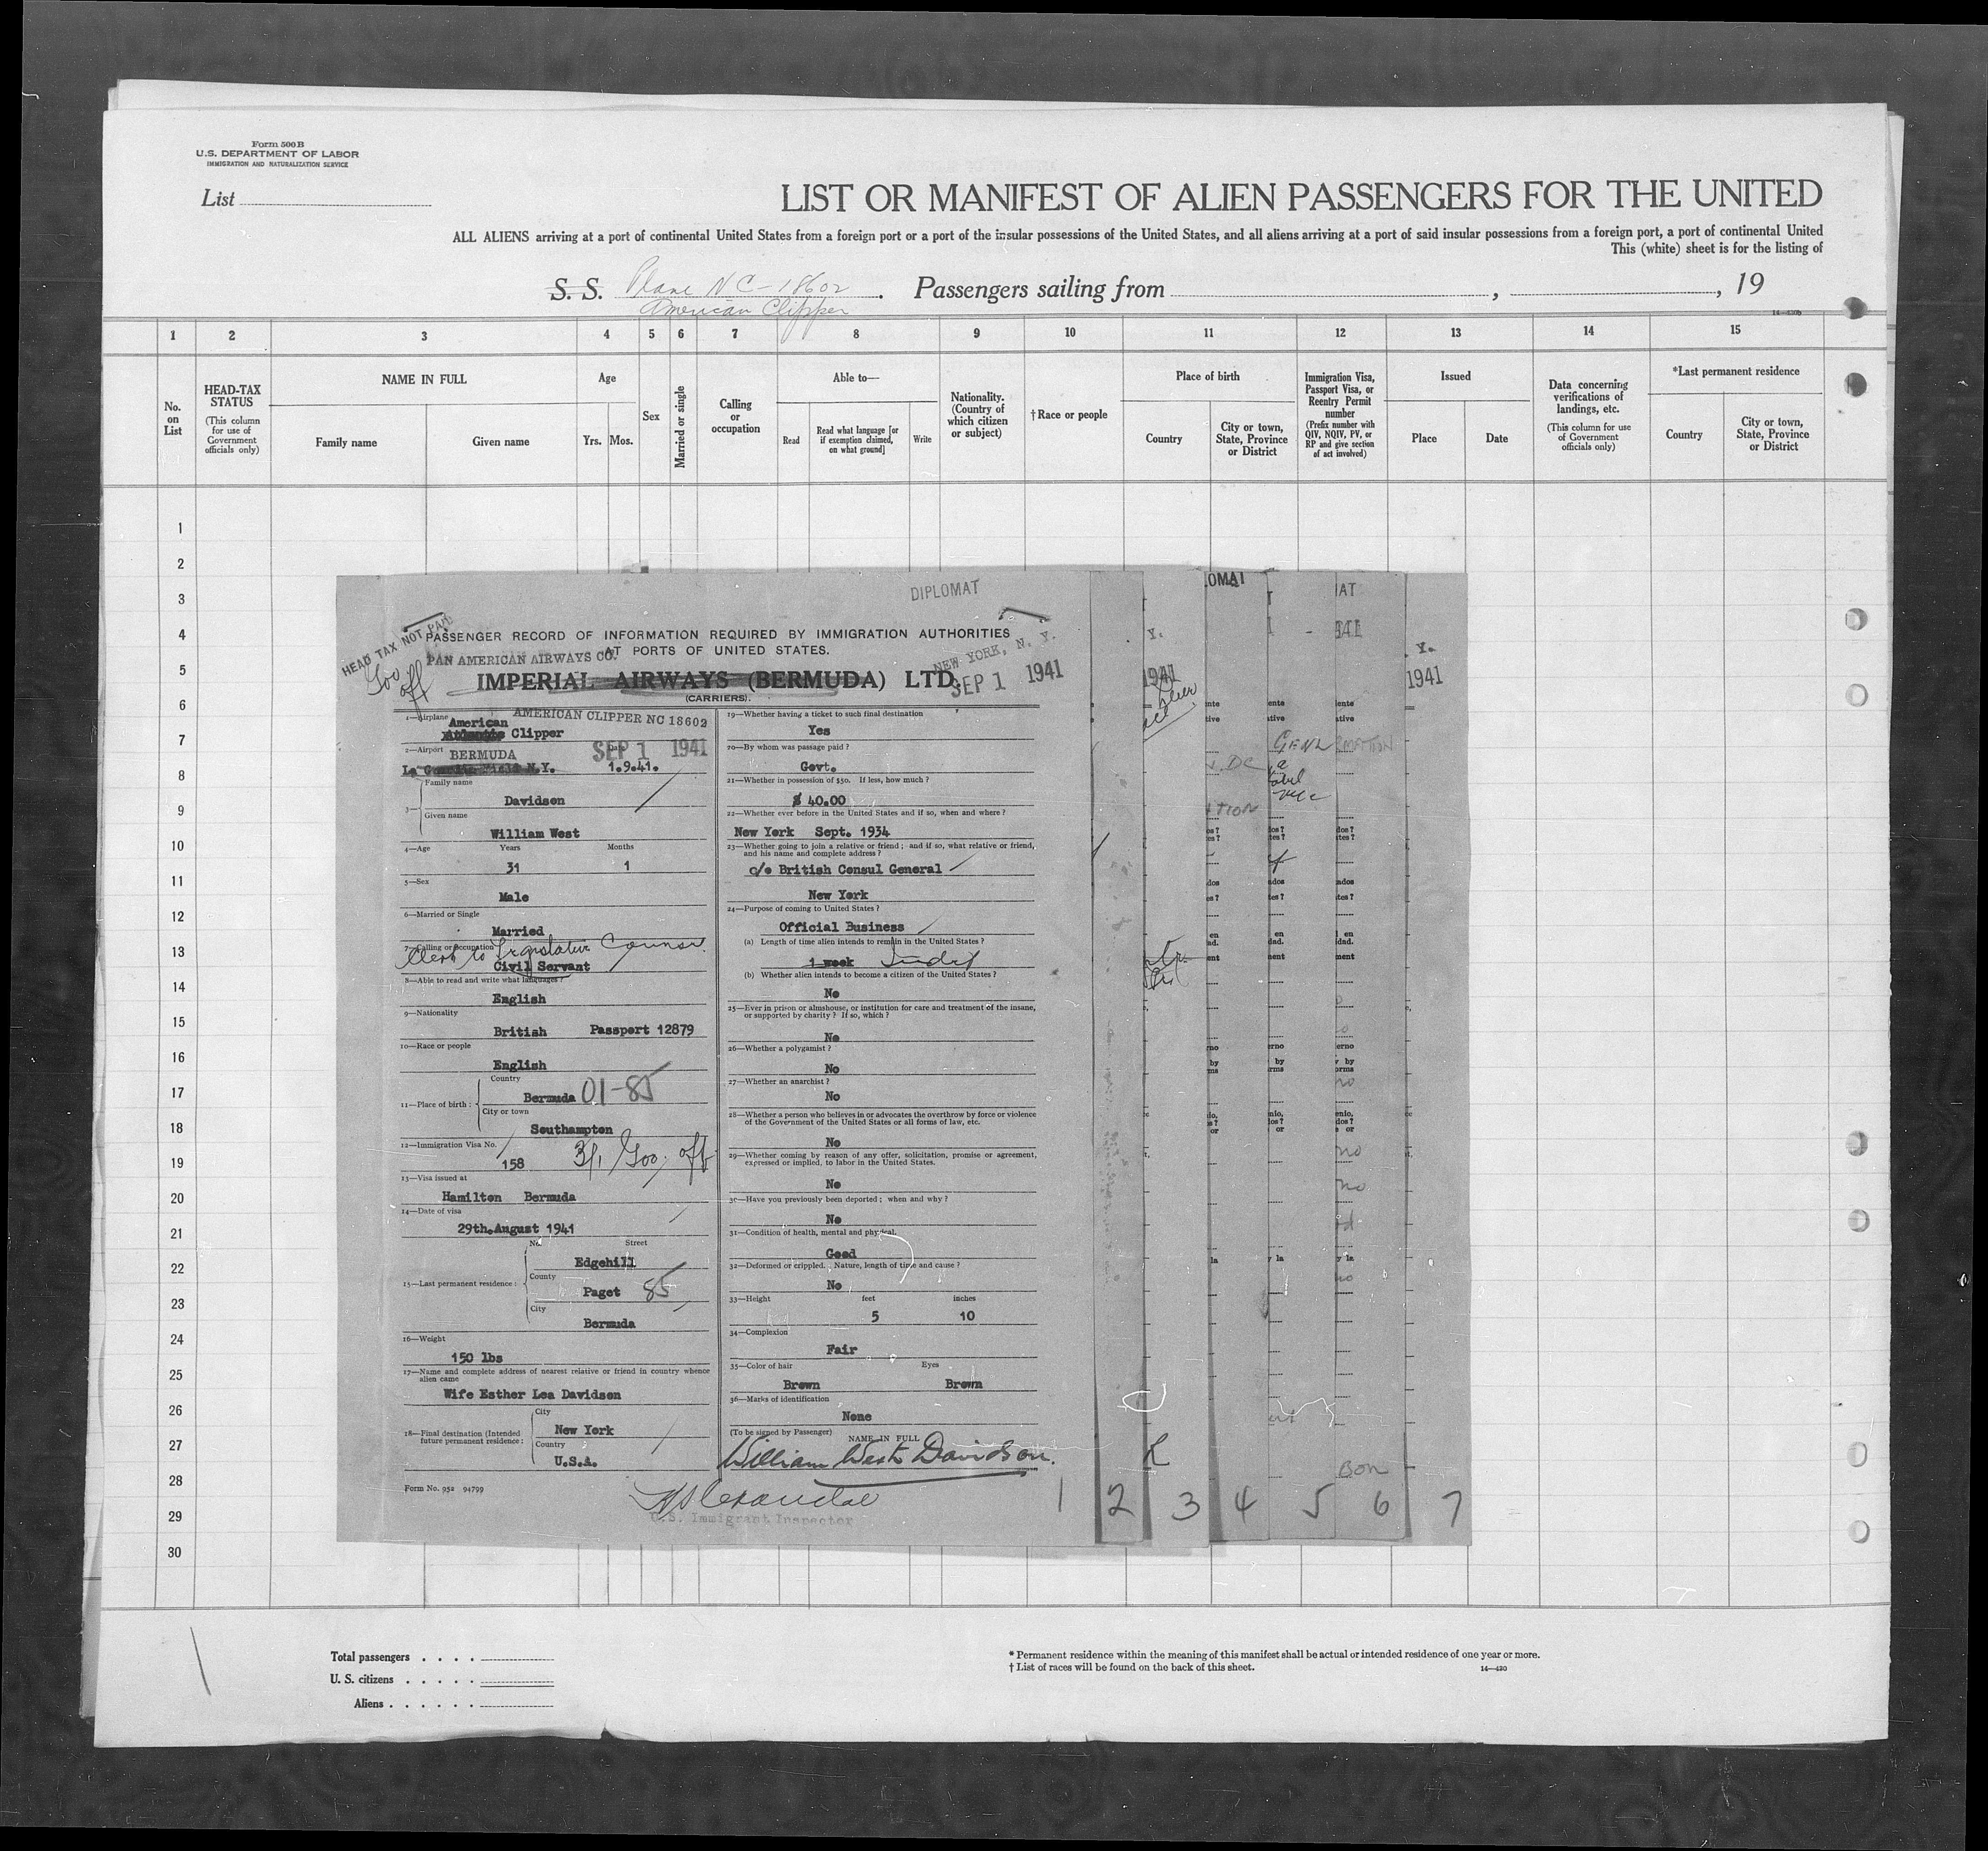 Form 500 B
U.S. DEPARTMENT OF LABOR
IMMIGRATION AND NATURALIZATION SERVICE
List
LIST OR MANIFEST OF ALIEN PASSENGERS FOR THE UNITED
ALL ALIENS arriving at a port of continental United States from a foreign port or a port of the insular possessions of the United States, and all aliens arriving at a port of said insular possessions from a foreign port, a port of continental United
This (white) sheet is for the listing of
S. S. Plane NC-18602 . Passengers sailing from , , 19
American Clipper
1 2 3 4 5 6 7 8 9 10 11 12 13 14 15
No. on List
HEAD-TAX STATUS
(This column for use of Government officials only)
NAME IN FULL
Family name
Given name
Age
Yrs. Mos.
Sex
Married or single
Calling or occupation
Able to—
Read
Read what language [or if exemption claimed, on what ground]
Write
Nationality. (Country of which citizen or subject)
†Race or people
Place of birth
Country
City or town, State, Province or District
Immigration Visa, Passport Visa, or Reentry Permit number
(Prefix number with QIV, NQIV, PV, or RP and give section of act involved)
Issued
Place
Date
Data concerning verifications of landings, etc.
(This column for use of Government officials only)
*Last permanent residence
Country
City or town, State, Province or District
1
2
3
4
5
6
7
8
9
10
11
12
13
14
15
16
17
18
19
20
21
22
23
24
25
26
27
28
29
30
DIPLOMAT
HEAD TAX NOT PAID
PASSENGER RECORD OF INFORMATION REQUIRED BY IMMIGRATION AUTHORITIES
AT PORTS OF UNITED STATES.
PAN AMERICAN AIRWAYS CO.
NEW YORK, N. Y.
IMPERIAL AIRWAYS (BERMUDA) LTD.
SEP 1 1941
(CARRIERS).
1—Airplane
AMERICAN CLIPPER NC 18602
American
Clipper
2—Airport
BERMUDA
SEP 1 1941
1.9.41.
3—
Family name
Davidson
Given name
William West
4—Age Years Months
31 1
5—Sex
Male
6—Married or Single
Married
7—Calling or occupation
Clerk to Legislative
Civil Servant
8—Able to read and write what languages?
English
9—Nationality
British Passport 12879
10—Race or people
English
11—Place of birth:
Country
Bermuda 01-85
City or town
Southampton
12—Immigration Visa No.
158 3/1 Gov. off
13—Visa issued at
Hamilton Bermuda
14—Date of visa
29th.August 1941
15—Last permanent residence:
No. Street
Edgehill
County
Paget 85
City
Bermuda
16—Weight
150 lbs
17—Name and complete address of nearest relative or friend in country whence alien came
Wife Esther Lea Davidson
18—Final destination (Intended future permanent residence:
City
New York
Country
U.S.A.
Form No. 952 94799
19—Whether having a ticket to such final destination
Yes
20—By whom was passage paid?
Govt.
21—Whether in possession of $50. If less, how much?
$ 40.00
22—Whether ever before in the United States and if so, when and where?
New York Sept. 1934
23—Whether going to join a relative or friend; and if so, what relative or friend, and his name and complete address?
c/o British Consul General
New York
24—Purpose of coming to United States?
Official Business
(a) Length of time alien intends to remain in the United States?
1 week Indef
(b) Whether alien intends to become a citizen of the United States?
No
25—Ever in prison or almshouse, or institution for care and treatment of the insane, or supported by charity? If so, which?
No
26—Whether a polygamist?
No
27—Whether an anarchist?
No
28—Whether a person who believes in or advocates the overthrow by force or violence of the Government of the United States or all forms of law, etc.
No
29—Whether coming by reason of any offer, solicitation, promise or agreement, expressed or implied, to labor in the United States.
No
30—Have you previously been deported; when and why?
No
31—Condition of health, mental and physical.
Good
32—Deformed or crippled. Nature, length of time and cause?
No
33—Height feet inches
5 10
34—Complexion
Fair
35—Color of hair Eyes
Brown Brown
36—Marks of identification
None
(To be signed by Passenger)
NAME IN FULL
William West Davidson.
U.S. Immigrant Inspector
1 2 3 4 5 6 7
Total passengers
U. S. citizens
Aliens
* Permanent residence within the meaning of this manifest shall be actual or intended residence of one year or more.
† List of races will be found on the back of this sheet.
14—420